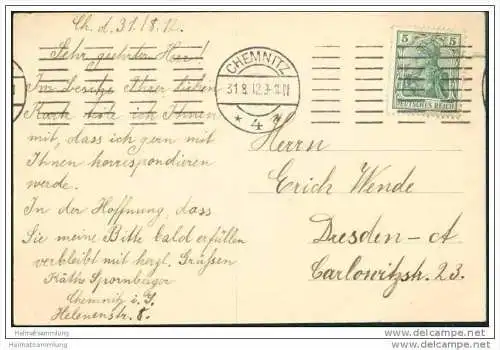 Ch. d. 31./8.12.
Sehr geehrter Herr!
Im Besitze Ihrer lieben
Karte teile ich Ihnen
mit, dass ich gern mit
Ihnen korrespondieren
werde.
In der Hoffnung, dass
Sie meine Bitte bald erfüllen
verbleibt mit herzl. Grüssen
Käthe Spornberger
Chemnitz i. S.
Helenenstr. 8.
CHEMNITZ
31.8.12.
* 4
5 5
DEUTSCHES REICH
Herrn
Erich Wende
Dresden-A
Carlowitzstr. 23.
Heimatsammlung
Heimatsammlung
Heimatsammlung
Heimatsammlung